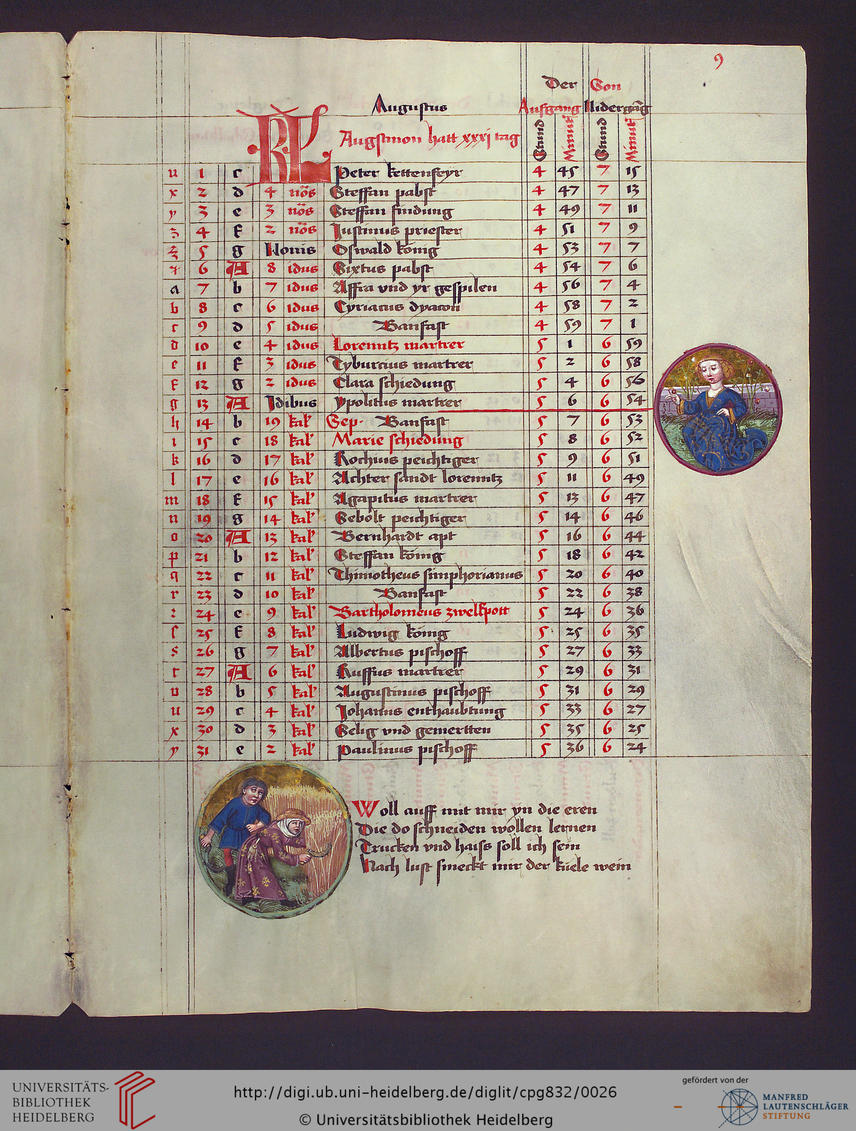 9
Der Son
Augustus Aufgang Nidergāg
KL Augstmon hatt xxxj tag Stund Minut Stund Minut
u 1 c Peter kettenfeyr 4 45 7 15
x 2 d 4 nōs Steffan pabst 4 47 7 13
y 3 e 3 nōs Steffan findung 4 49 7 11
z 4 f 2 nōs Justinus priester 4 51 7 9
5 g Nonis Oswald konig 4 53 7 7
6 A 8 idus Sixtus pabst 4 54 7 6
a 7 b 7 idus Affra vnd yr gespilen 4 56 7 4
b 8 c 6 idus Cyriacus dyacon 4 58 7 2
c 9 d 5 idus Banfast 4 59 7 1
d 10 e 4 idus Lorenntz martrer 5 1 6 59
e 11 f 3 idus Tyburcius martrer 5 2 6 58
f 12 g 2 idus Clara schiedung 5 4 6 56
g 13 A Idibus Ypolitus martrer 5 6 6 54
h 14 b 19 kal' Sep. Banfast 5 7 6 53
i 15 c 18 kal' Marie schiedung 5 8 6 52
k 16 d 17 kal' Rochius peichtiger 5 9 6 51
l 17 e 16 kal' Achter sandt lorenntz 5 11 6 49
m 18 f 15 kal' Agapitus martrer 5 13 6 47
n 19 g 14 kal' Sebolt peichtiger 5 14 6 46
o 20 A 13 kal' Bernhardt apt 5 16 6 44
p 21 b 12 kal' Steffan konig 5 18 6 42
q 22 c 11 kal' Thimotheus simphorianus 5 20 6 40
r 23 d 10 kal' Banfast 5 22 6 38
z 24 e 9 kal' Bartholomeus zwelfpott 5 24 6 36
ſ 25 f 8 kal' Ludwig konig 5 25 6 35
s 26 g 7 kal' Albertus pischoff 5 27 6 33
t 27 A 6 kal' Ruffus martrer 5 29 6 31
v 28 b 5 kal' Augustinus pischoff 5 31 6 29
u 29 c 4 kal' Johannes enthaubtung 5 33 6 27
x 30 d 3 kal' Selig vnd gemertten 5 35 6 25
y 31 e 2 kal' Paulinus pischoff 5 36 6 24
Woll auff mit mir yn die eren
Die do schneiden wollen lernen
Trucken vnd haiss soll ich sein
Nach lust smeckt mir der kuele wein
UNIVERSITÄTS-
BIBLIOTHEK
HEIDELBERG
http://digi.ub.uni-heidelberg.de/diglit/cpg832/0026
© Universitätsbibliothek Heidelberg
gefördert von der
MANFRED
LAUTENSCHLÄGER
STIFTUNG